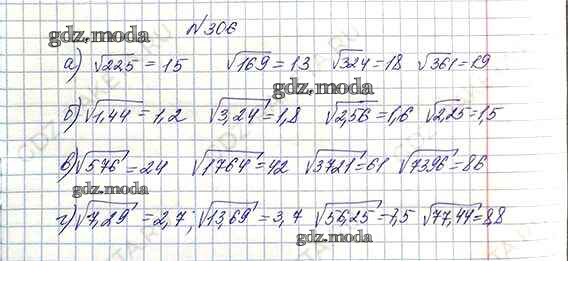 №306
gdz.moda
а) √225 = 15 √169 = 13 √324 = 18 √361 = 19
gdz.moda
б) √1,44 = 1,2 √3,24 = 1,8 √2,56 = 1,6 √2,25 = 1,5
в) √576 = 24 √1764 = 42 √3721 = 61 √7396 = 86
gdz.moda
г) √7,29 = 2,7; √13,69 = 3,7 √56,25 = 7,5 √77,44 = 8,8
gdz.moda